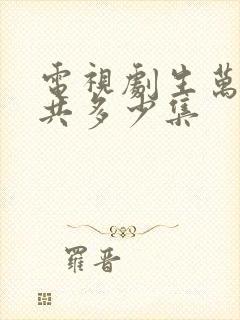 電視劇生萬
共多少集
羅晋